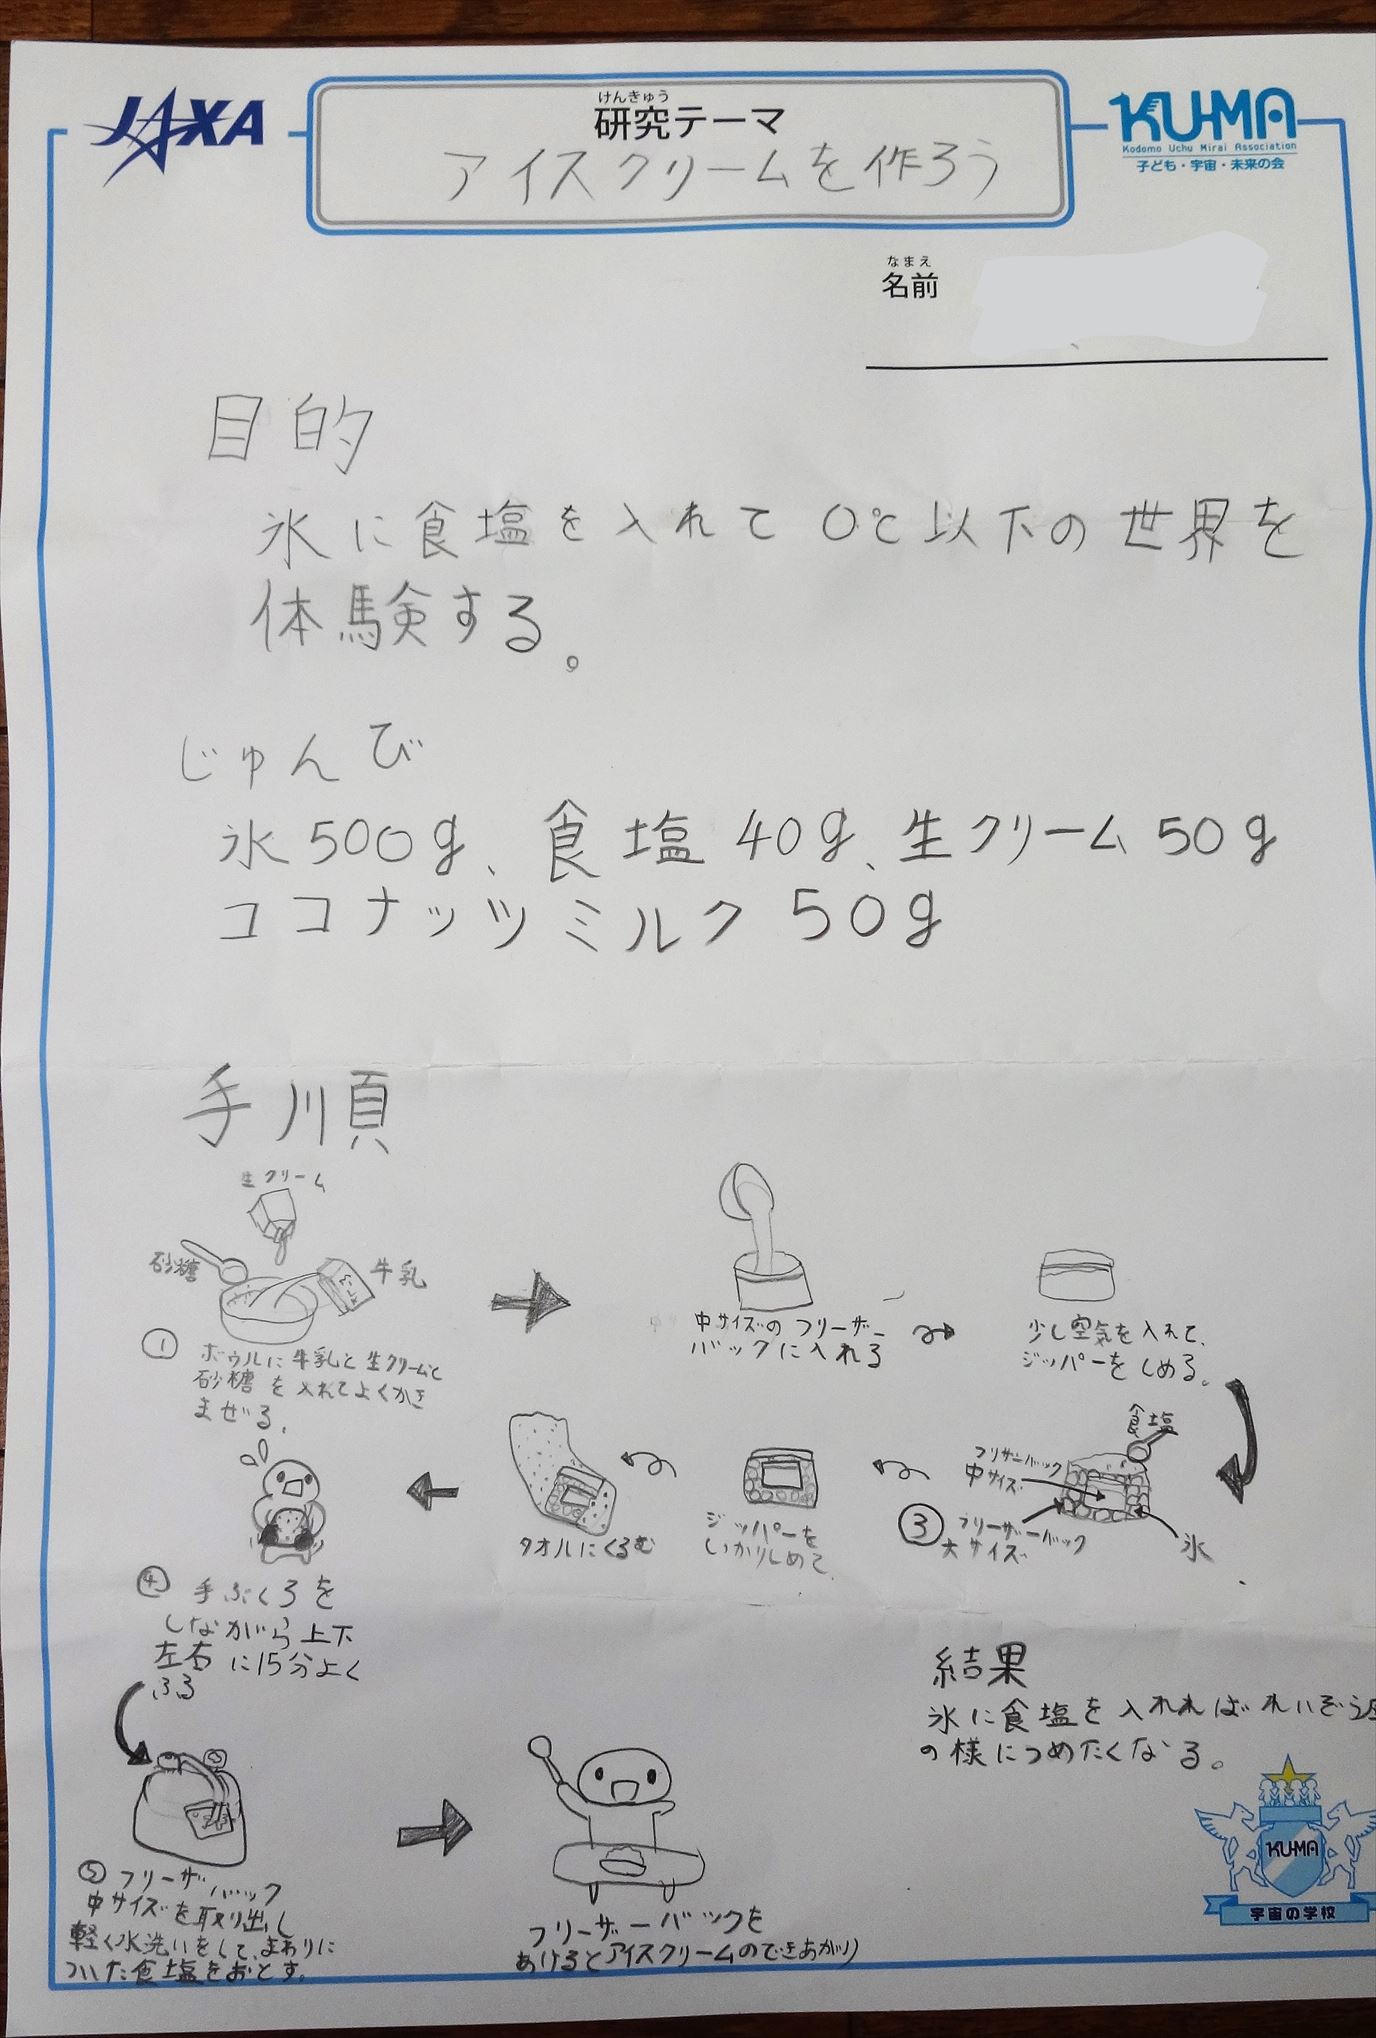 JAXA
けんきゅう
研究テーマ
アイスクリームを作ろう
KU-MA
Kodomo Uchu Mirai Association
子ども・宇宙・未来の会
なまえ
名前
目的
氷に食塩を入れて0℃以下の世界を
体験する。
じゅんび
氷500g、食塩40g、生クリーム50g
ココナッツミルク50g
手順
生クリーム
砂糖
牛乳
①
ボウルに牛乳と生クリームと
砂糖を入れてよくかき
まぜる.
中サイズのフリーザー
バックに入れる
少し空気を入れて、
ジッパーをしめる。
食塩
フリザーバック
中サイズ
③
フリーザーバック
大サイズ
氷
ジッパーを
しっかりしめて
タオルにくるむ
④ 手ぶくろを
しながら上下
左右に15分よく
ふる
⑤フリーザーバック
中サイズを取り出し
軽く水洗いをして、まわりに
ついた食塩をおとす。
フリーザーバックを
あけるとアイスクリームのできあがり
結果
氷に食塩を入れればれいぞう
の様につめたくなる。
KU-MA
宇宙の学校